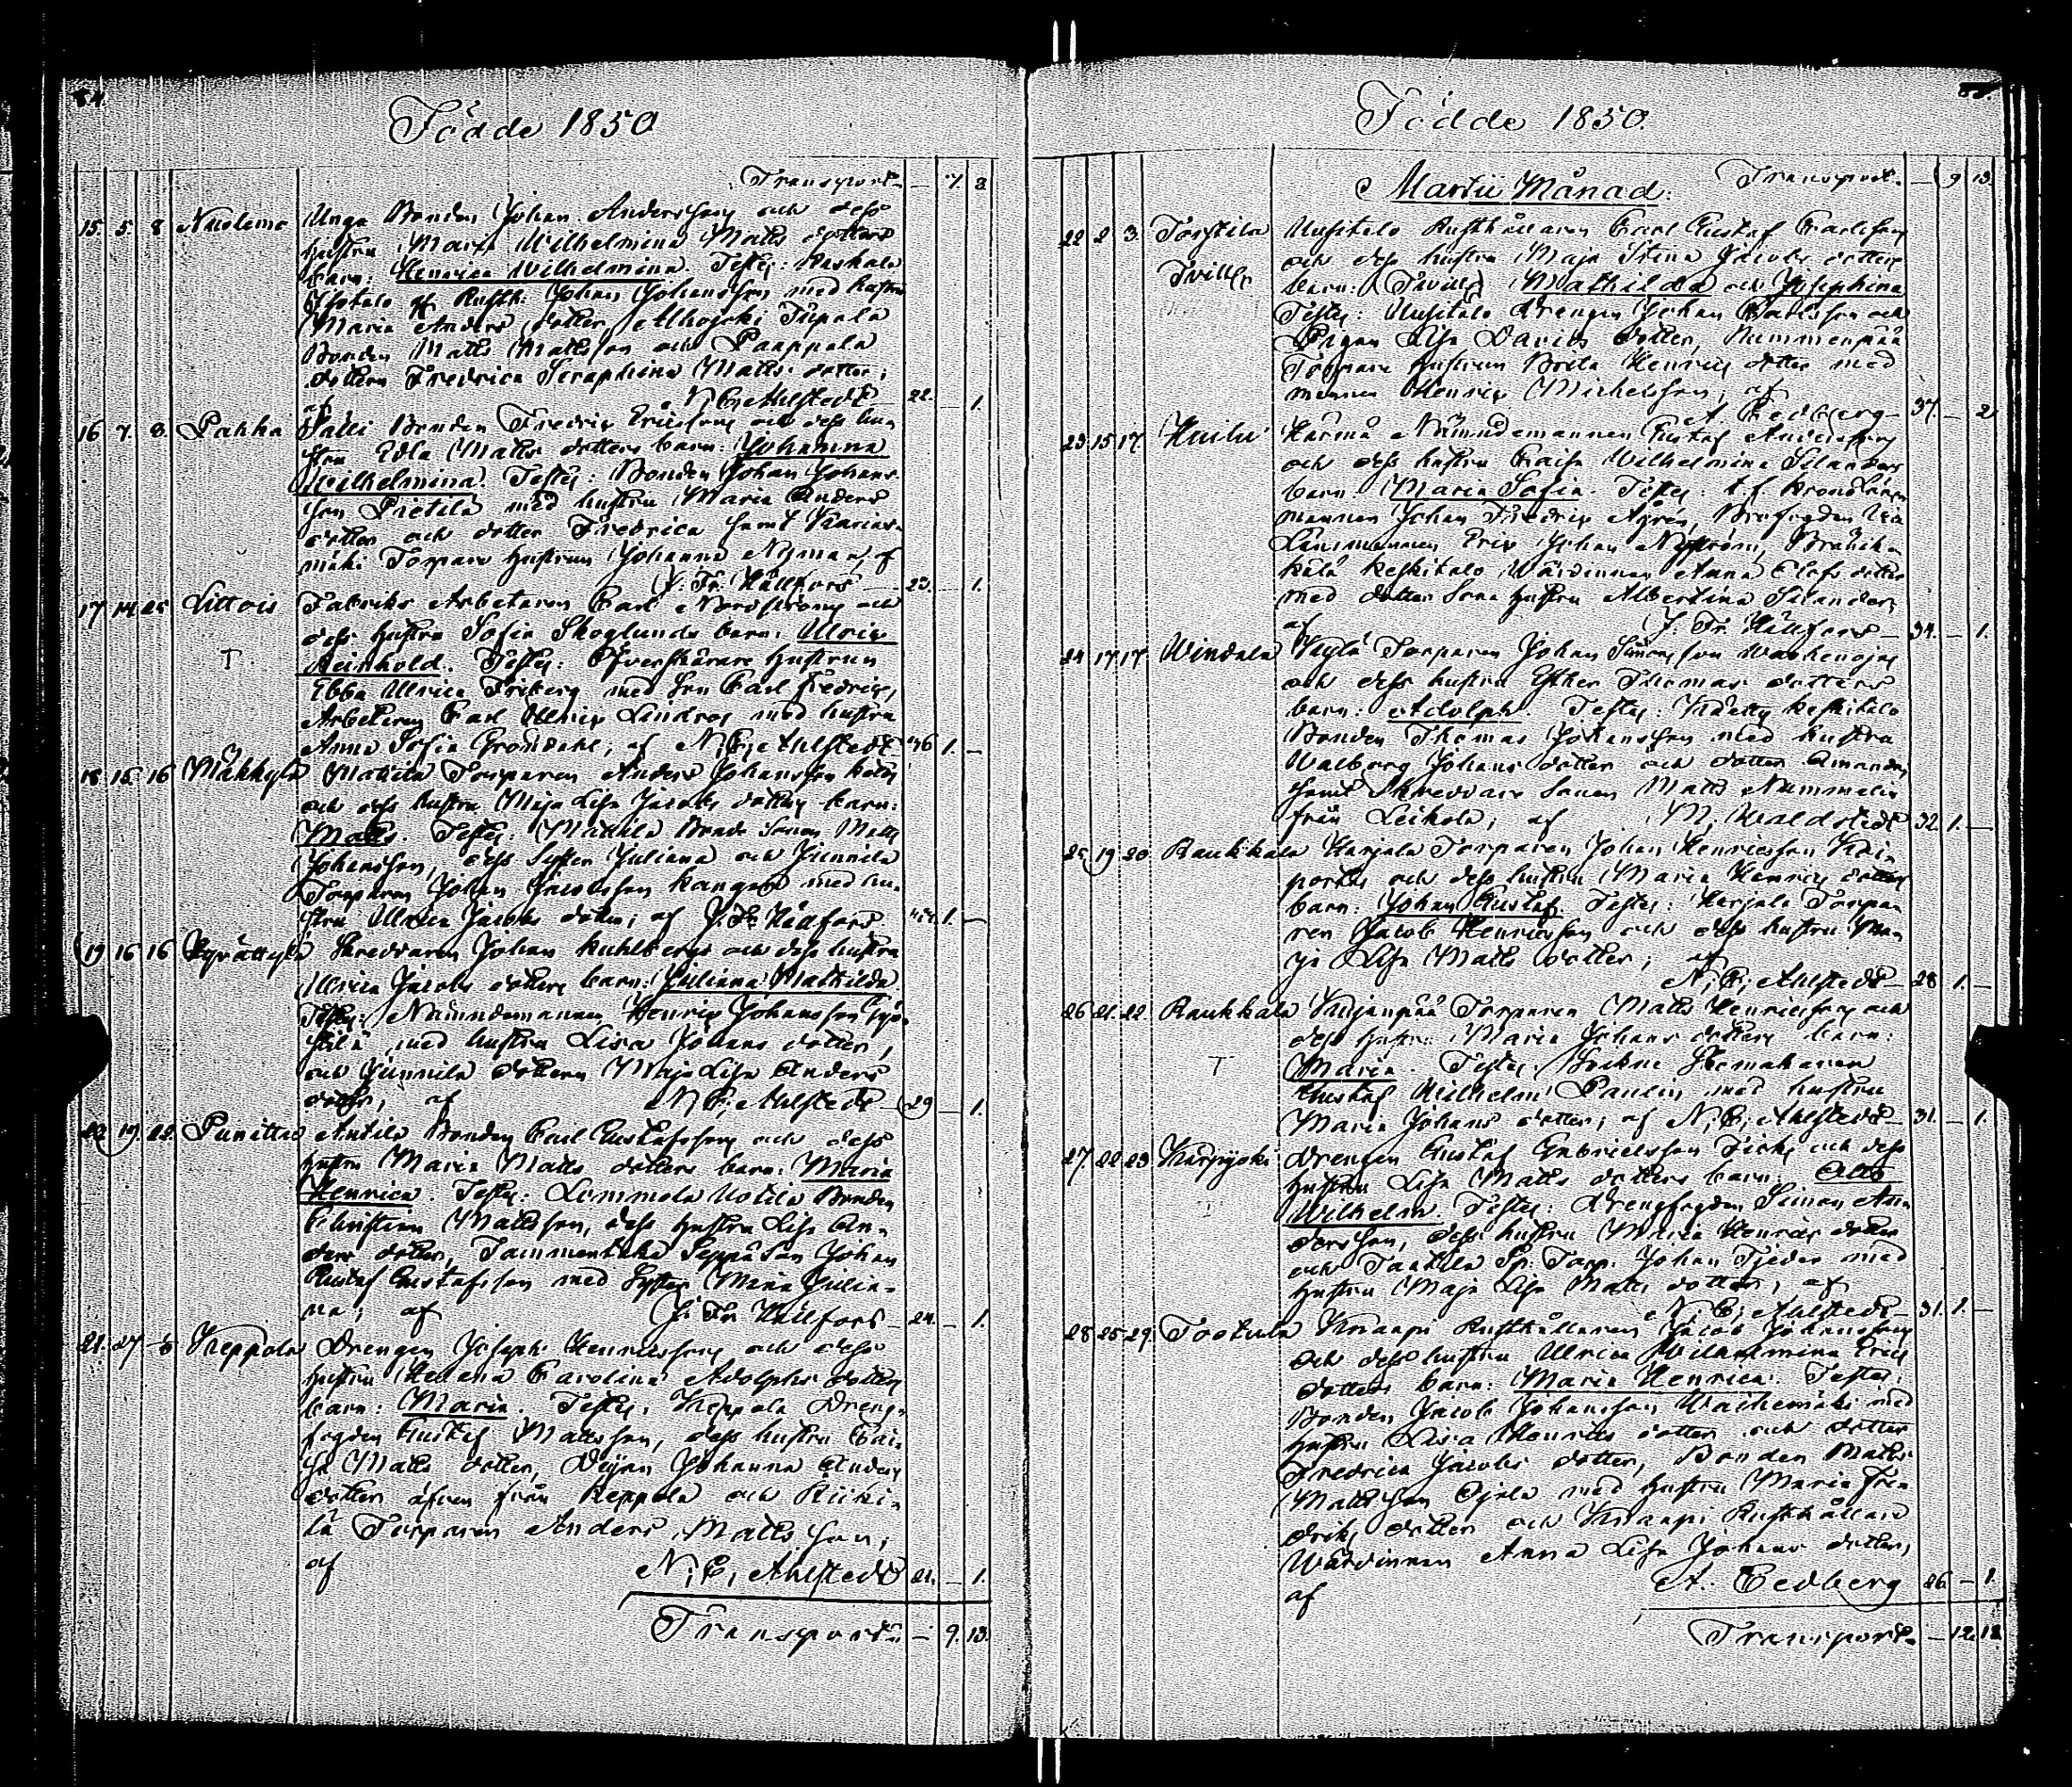 Födde 1850
Transport — 7. 3
15. 5. 8 Nuolemo Unga Bonden Johan Andersson och dess
hustru Maria Wilhelmina Matts dotters
barn: Henrica Wilhelmina. Testes: Raskala
af Rusth: Johan Johansson med hustru
Maria Anders dotter,
Bonden Matts Mattsson och Paappala
dottern Fredrica Seraphina Matts dotter;
af N. C. Ahlstedt 22. — 1.
16 7. 8. Pahka Bonden Fredric Ericsson och dess hu
stru Edla Matts dotters barn: Johanna
Wilhelmina. Testes: Bonden Johan Johans
son Pietilä med hustru Maria Anders
dotter och dotter Fredrica samt
mäki Torpare hustrun Johanna Nyman, af
J. Fr. Hällfors — 23. — 1.
17 14 25 Littois Fabriks Arbetaren Carl Nordström och
dess hustru Sofia Skoglunds barn: Ulric
T Reinhold. Testes: Öfverskärare hustrun
Ebba Ulrica Friberg med son Carl Fredric,
Arbetaren Carl Ulric Lindros med hustru
Anna Sofia Gröndahl, af N. C. Ahlstedt 36 1. —
18. 15. 16 Mäkkylä Mattila Torparen Anders Johansson
och dess hustru Maja Lisa Jacobs dotters barn:
Matts. Testes: Mattila Bonde sonen Matts
Johansson, dess syster Juliana och Junnila
Torparen Johan Jacobsson Kangas med hu-
stru Ulrica Jacobs dotter; af J. Fr. Hällfors 1. —
19 16 16 Skreddaren Johan Kuhlbergs och dess hustru
Ulrica Jacobs dotters barn: Juliana Mathilda.
Testes: Nämndemannen Henric Johansson
med hustru Lisa Johans dotter,
och Junnila dottern Maja Lisa Anders
dotter, af N. C. Ahlstedt 29 — 1.
20 19. 22. Punittu Anttila Bonden Carl Gustafsson och dess
hustru Maria Matts dotters barn: Maria
Henrica. Testes: Lemmola Uotila Bonden
Christian Mattsson, dess hustru Lisa An-
ders dotter, Tammentaka Seppä Son Johan
Gustaf Gustafsson med Syster Maria Julia-
na; af J. Fr. Hällfors — 24. — 1.
21. 27 Keppola Drengen Joseph Henricsson och dess
hustru Helena Carolina Adolphs dotters
barn: Maria. Testes: Keppola Dreng-
fogden Gustaf Mattsson, dess hustru Cai-
sa Matts dotter, Pigan Johanna Anders
dotter äfven från Keppola och Riiki-
lä Torparen Anders Mattsson;
af N. C. Ahlstedt 21. — 1.
Transport — 9. 13.
Födde 1850.
Martii Månad. Transport. — 9 13.
22 2 3. Torstila Uusitalo Rusthållaren Carl Gustaf Carlsson
Tvill: och dess hustru Maja Stina Jacobs dotters
barn: (Tvill:) Mathilda och Josephina
Testes: Uusitalo Drengen Johan Carlsson och
Pigan Lisa Davids dotter, Nummenpää
Torpare hustrun Brita Henrics dotter med
mannen Henric Michelsson, af
A Cedberg — 37. — 2
23. 15 17. Huilu Härmä Nämndemannen Gustaf Andersson
och dess hustru Caisa Wilhelmina Silanders
barn: Maria Sofia. Testes: t. f. Kronoläns
mannen Johan Fredric Ågren, Brofogden Vice
Länsmannen Eric Johan Nyström,
kälä Keskitalo Wärdinnan Anna Elofs dotter
med dotter Lena hustru Albertina Silander;
af J. Fr. Hällfors — 34. — 1.
24 17 17 Windala Torparen Johan Simonsson
och dess hustru Esther Thomas dotters
barn: Adolph. Testes: Keskitalo
Bonden Thomas Johansson med hustru
Walborg Johans dotter och dotter Amanda,
samt Skreddare Sonen Matts Nummelin
från Leikola, af M. Waldstedt 32. 1. —
25 19 20 Raukkala Karjala Torparen Johan Henricsson
och dess hustru Maria Henrics dotters
barn: Johan Gustaf. Testes: Karjala Torpa
ren Jacob Henricsson och dess hustru Ma
ja Lisa Matts dotter; af
N. C. Ahlstedt — 28 1. —
26 21. 22 Raukkala Torparen Matts Henricsson och
dess hustru Maria Johans dotters barn:
T Maria. Testes: Sockne Skomakaren
Gustaf Wilhelm Paulin med hustru
Maria Johans dotter; af N. C. Ahlstedt — 31. — 1.
27. 22 23 Karpijoki Drengen Gustaf Gabrielsson Fick och dess
hustru Lisa Matts dotters barn: Otto
Wilhelm. Testes: Drengfogden Simon An
dersson, dess hustru Maria Henrics dotter
och Tanttila Sp: Torp. Johan Tjeder med
hustru Maja Lisa Matts dotter, af
N. C. Ahlstedt — 31. 1. —
28 25 29. Tootula Knaapi Rusthållaren Jacob Johansson
och dess hustru Ulrica Wilhelmina Erics
dotters barn: Maria Henrica. Testes:
Bonden Jacob Johansson Waihemäki med
hustru Lisa Henrics dotter och dotter
Fredrica Jacobs dotter, Bonden Matts
Mattsson Ojala med hustru Maria Fre
drics dotter och Knaapi Rusthållare
Wärdinnan Anna Lisa Johans dotter,
af A. Cedberg 26 — 1.
Transport. — 12 18